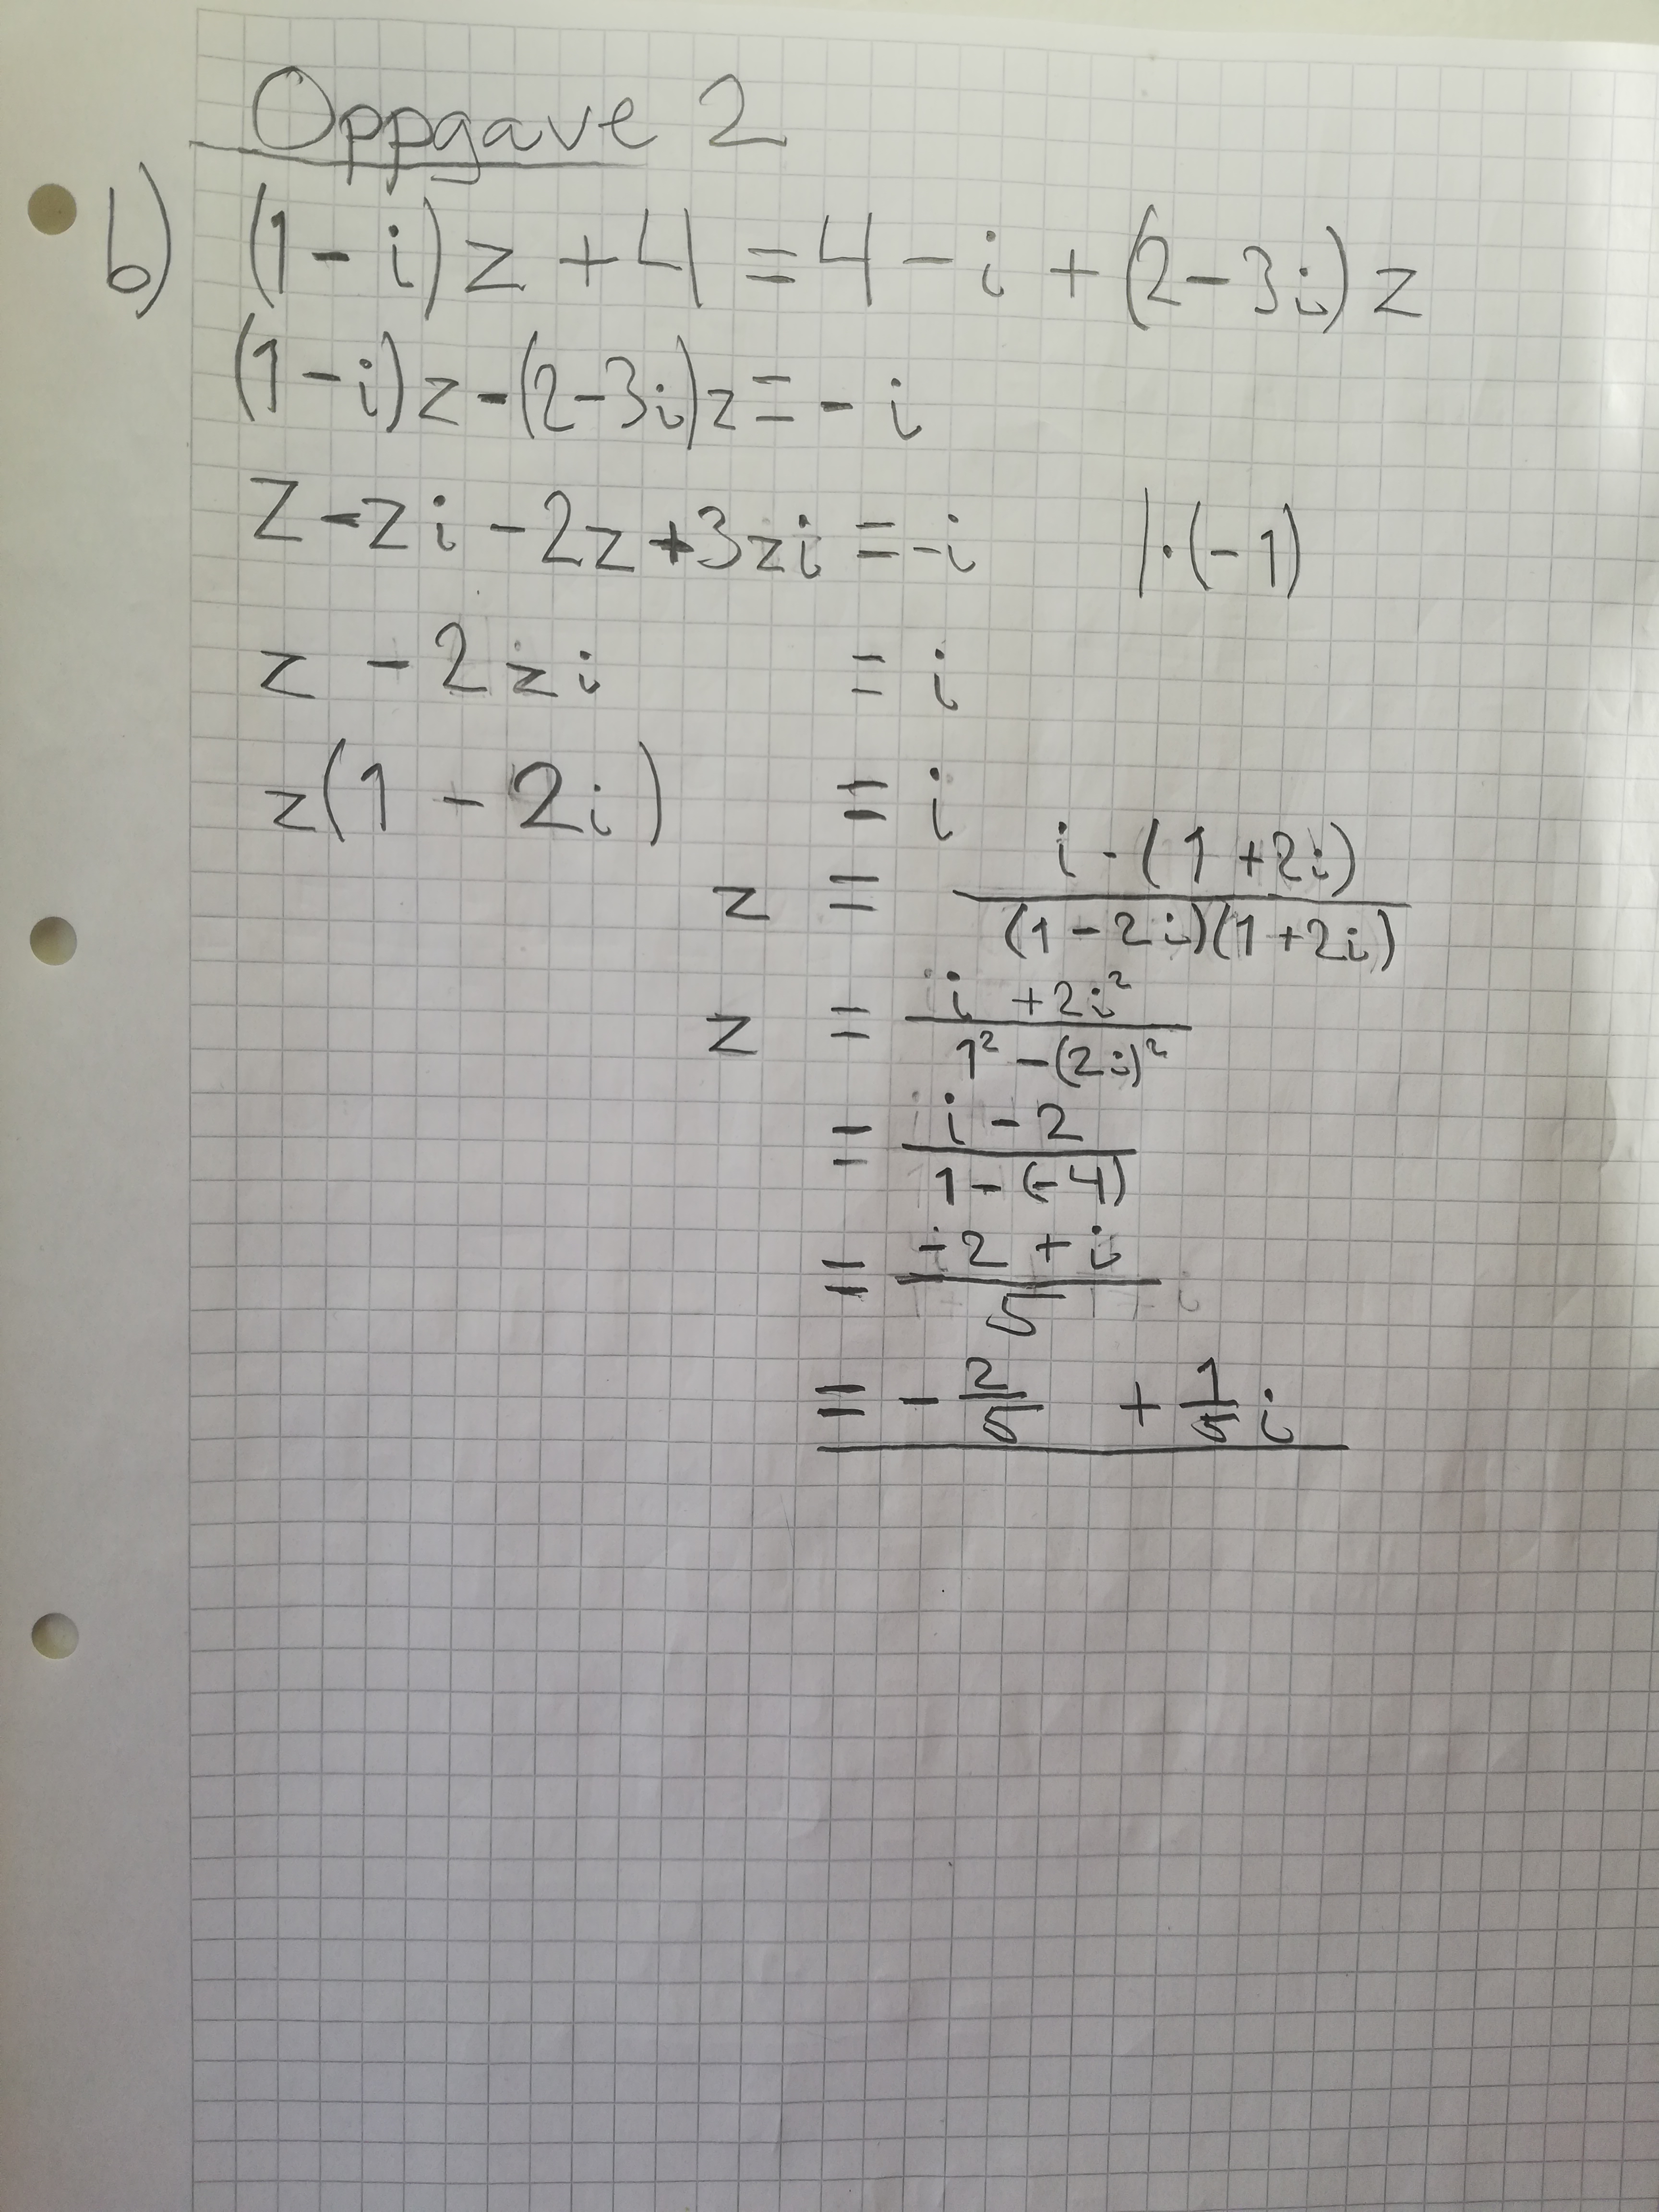 Oppgave 2
b) (1-i)z+4=4-i+(2-3i)z
(1-i)z-(2-3i)z=-i
z-zi-2z+3zi=-i |·(-1)
z-2zi = i
z(1-2i) = i
z = \frac{i·(1+2i)}{(1-2i)(1+2i)}
z = \frac{i+2i²}{1²-(2i)²}
= \frac{i-2}{1-(-4)}
= \frac{-2+i}{5}
= -\frac{2}{5} + \frac{1}{5}i